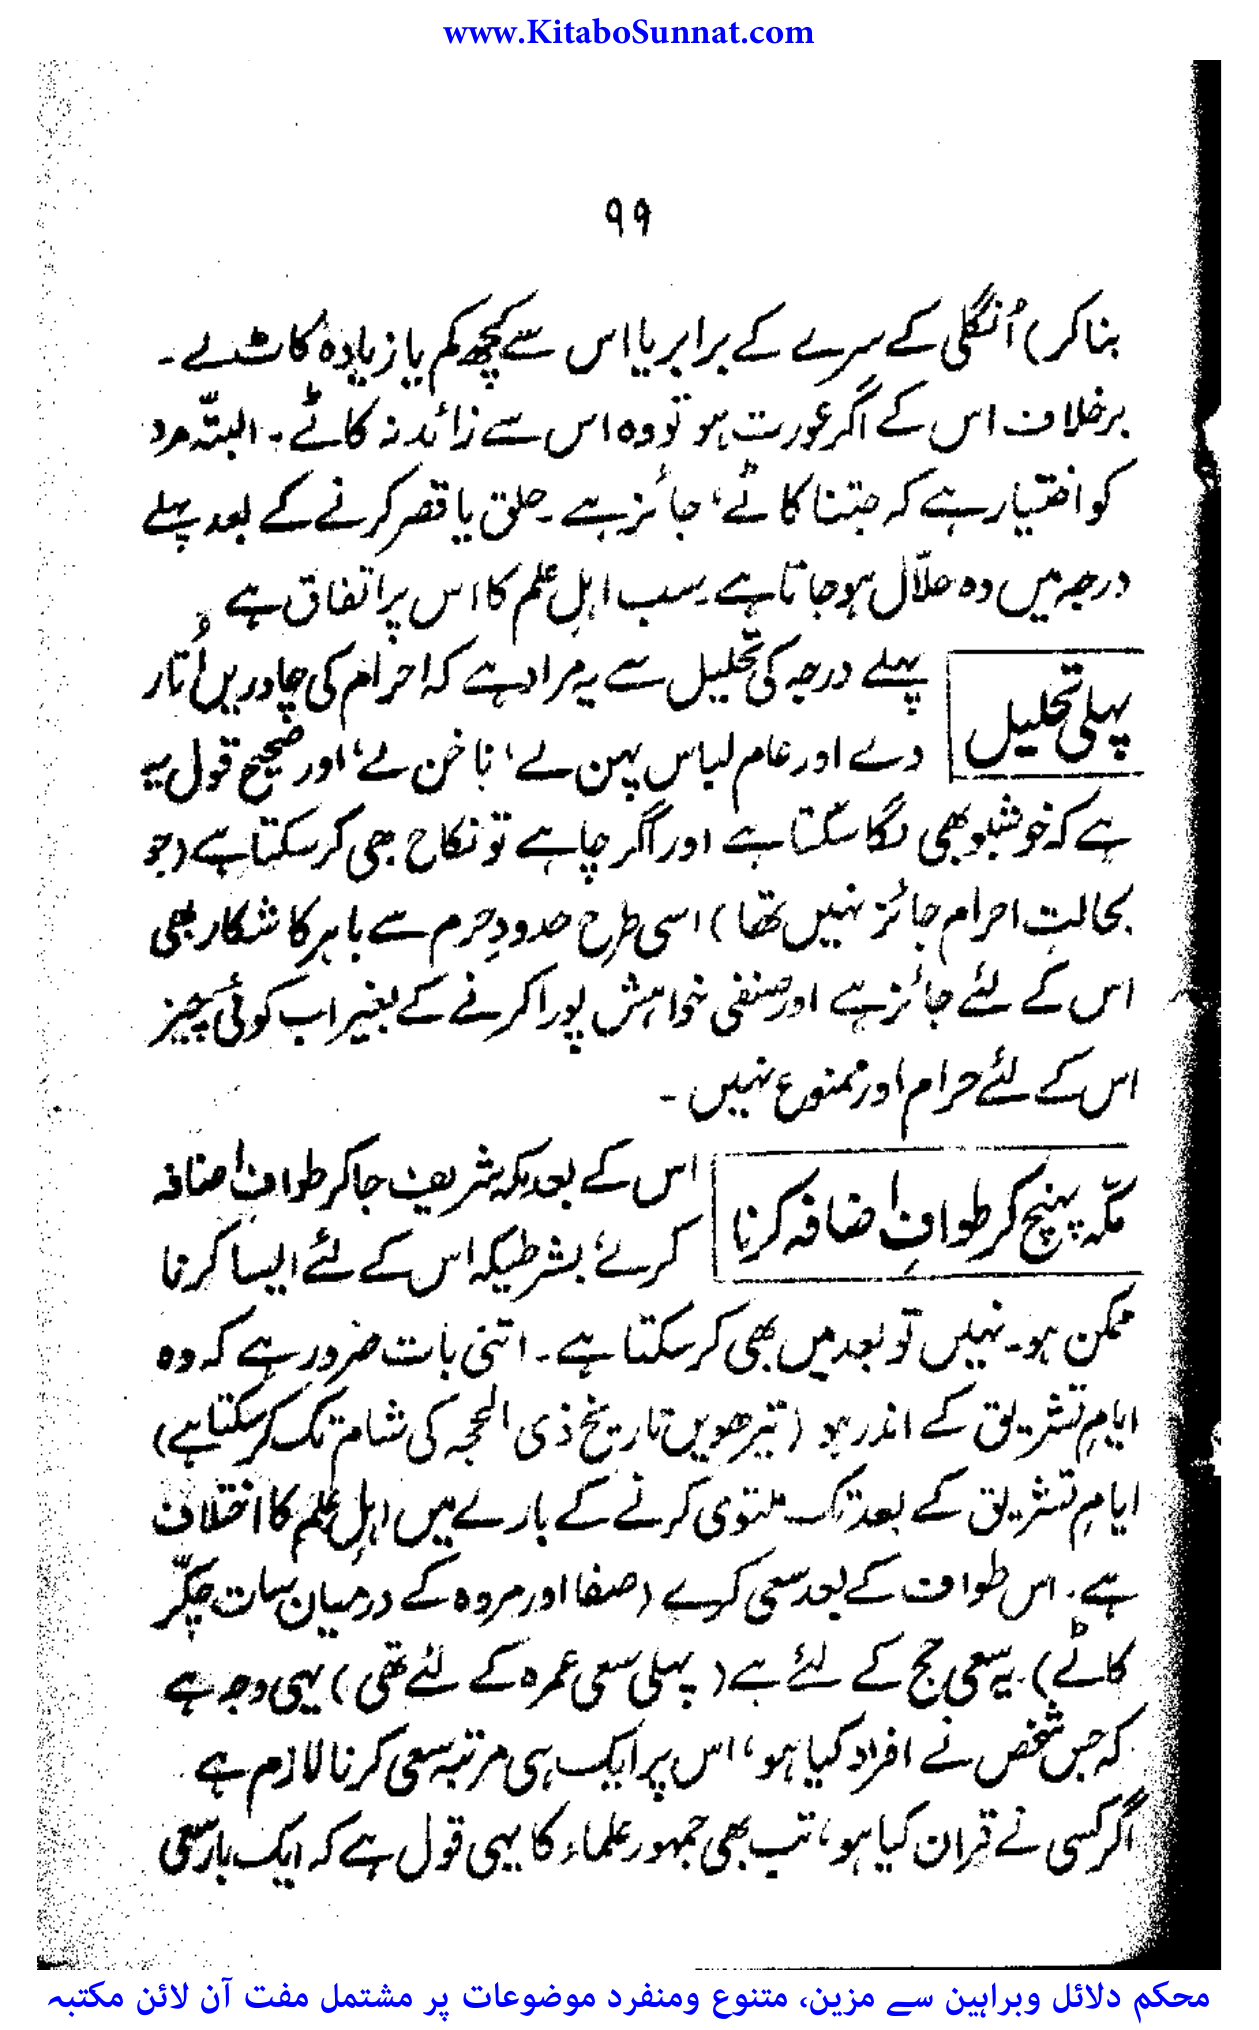 www.KitaboSunnat.com
۹۹
بنا کر) اُنگلی کے سرے کے برابر یا اس سے کچھ کم یا زیادہ کاٹ دے۔
برخلاف اس کے اگر عورت ہو تو وہ اس سے زائد نہ کاٹے۔ البتّہ مرد
کو اختیار ہے کہ جتنا کاٹے، جائز ہے۔ حلق یا قصر کرنے کے بعد پہلے
درجہ میں وہ حلاّل ہو جاتا ہے۔ سب اہلِ علم کا اس پر اتفاق ہے
پہلی تحلیل
پہلے درجہ کی تحلیل سے یہ مراد ہے کہ احرام کی چادریں اُتار
دے اور عام لباس پہن لے، ناخن لے، اور صحیح قول یہ
ہے کہ خوشبو بھی لگا سکتا ہے اور اگر چاہے تو نکاح بھی کر سکتا ہے (جو
بحالتِ احرام جائز نہیں تھا) اسی طرح حدودِ حرم سے باہر کا شکار بھی
اس کے لئے جائز ہے اور صنفی خواہش پورا کرنے کے بغیر اب کوئی چیز
اس کے لئے حرام اور ممنوع نہیں۔
مکّہ پہنچ کر طوافِ اضافہ کرنا
اس کے بعد مکہ شریف جا کر طوافِ اضافہ
کرے، بشرطیکہ اس کے لئے ایسا کرنا
ممکن ہو۔ نہیں تو بعد میں بھی کر سکتا ہے۔ اتنی بات ضرور ہے کہ وہ
ایامِ تشریق کے اندر ہو (تیرھویں تاریخ ذی الحجہ کی شام تک کر سکتا ہے)
ایامِ تشریق کے بعد تک ملتوی کرنے کے بارے میں اہلِ علم کا اختلاف
ہے۔ اس طواف کے بعد سعی کرے (صفا اور مروہ کے درمیان سات چکّر
کاٹے)۔ یہ سعی حج کے لئے ہے (پہلی سعی عمرہ کے لئے تھی) یہی وجہ ہے
کہ جس شخص نے افراد کیا ہو، اس پر ایک ہی مرتبہ سعی کرنا لازم ہے
اگر کسی نے قران کیا ہو، تب بھی جمہور علماء کا یہی قول ہے کہ ایک بار سعی
محکم دلائل وبراہین سے مزین، متنوع ومنفرد موضوعات پر مشتمل مفت آن لائن مکتبہ